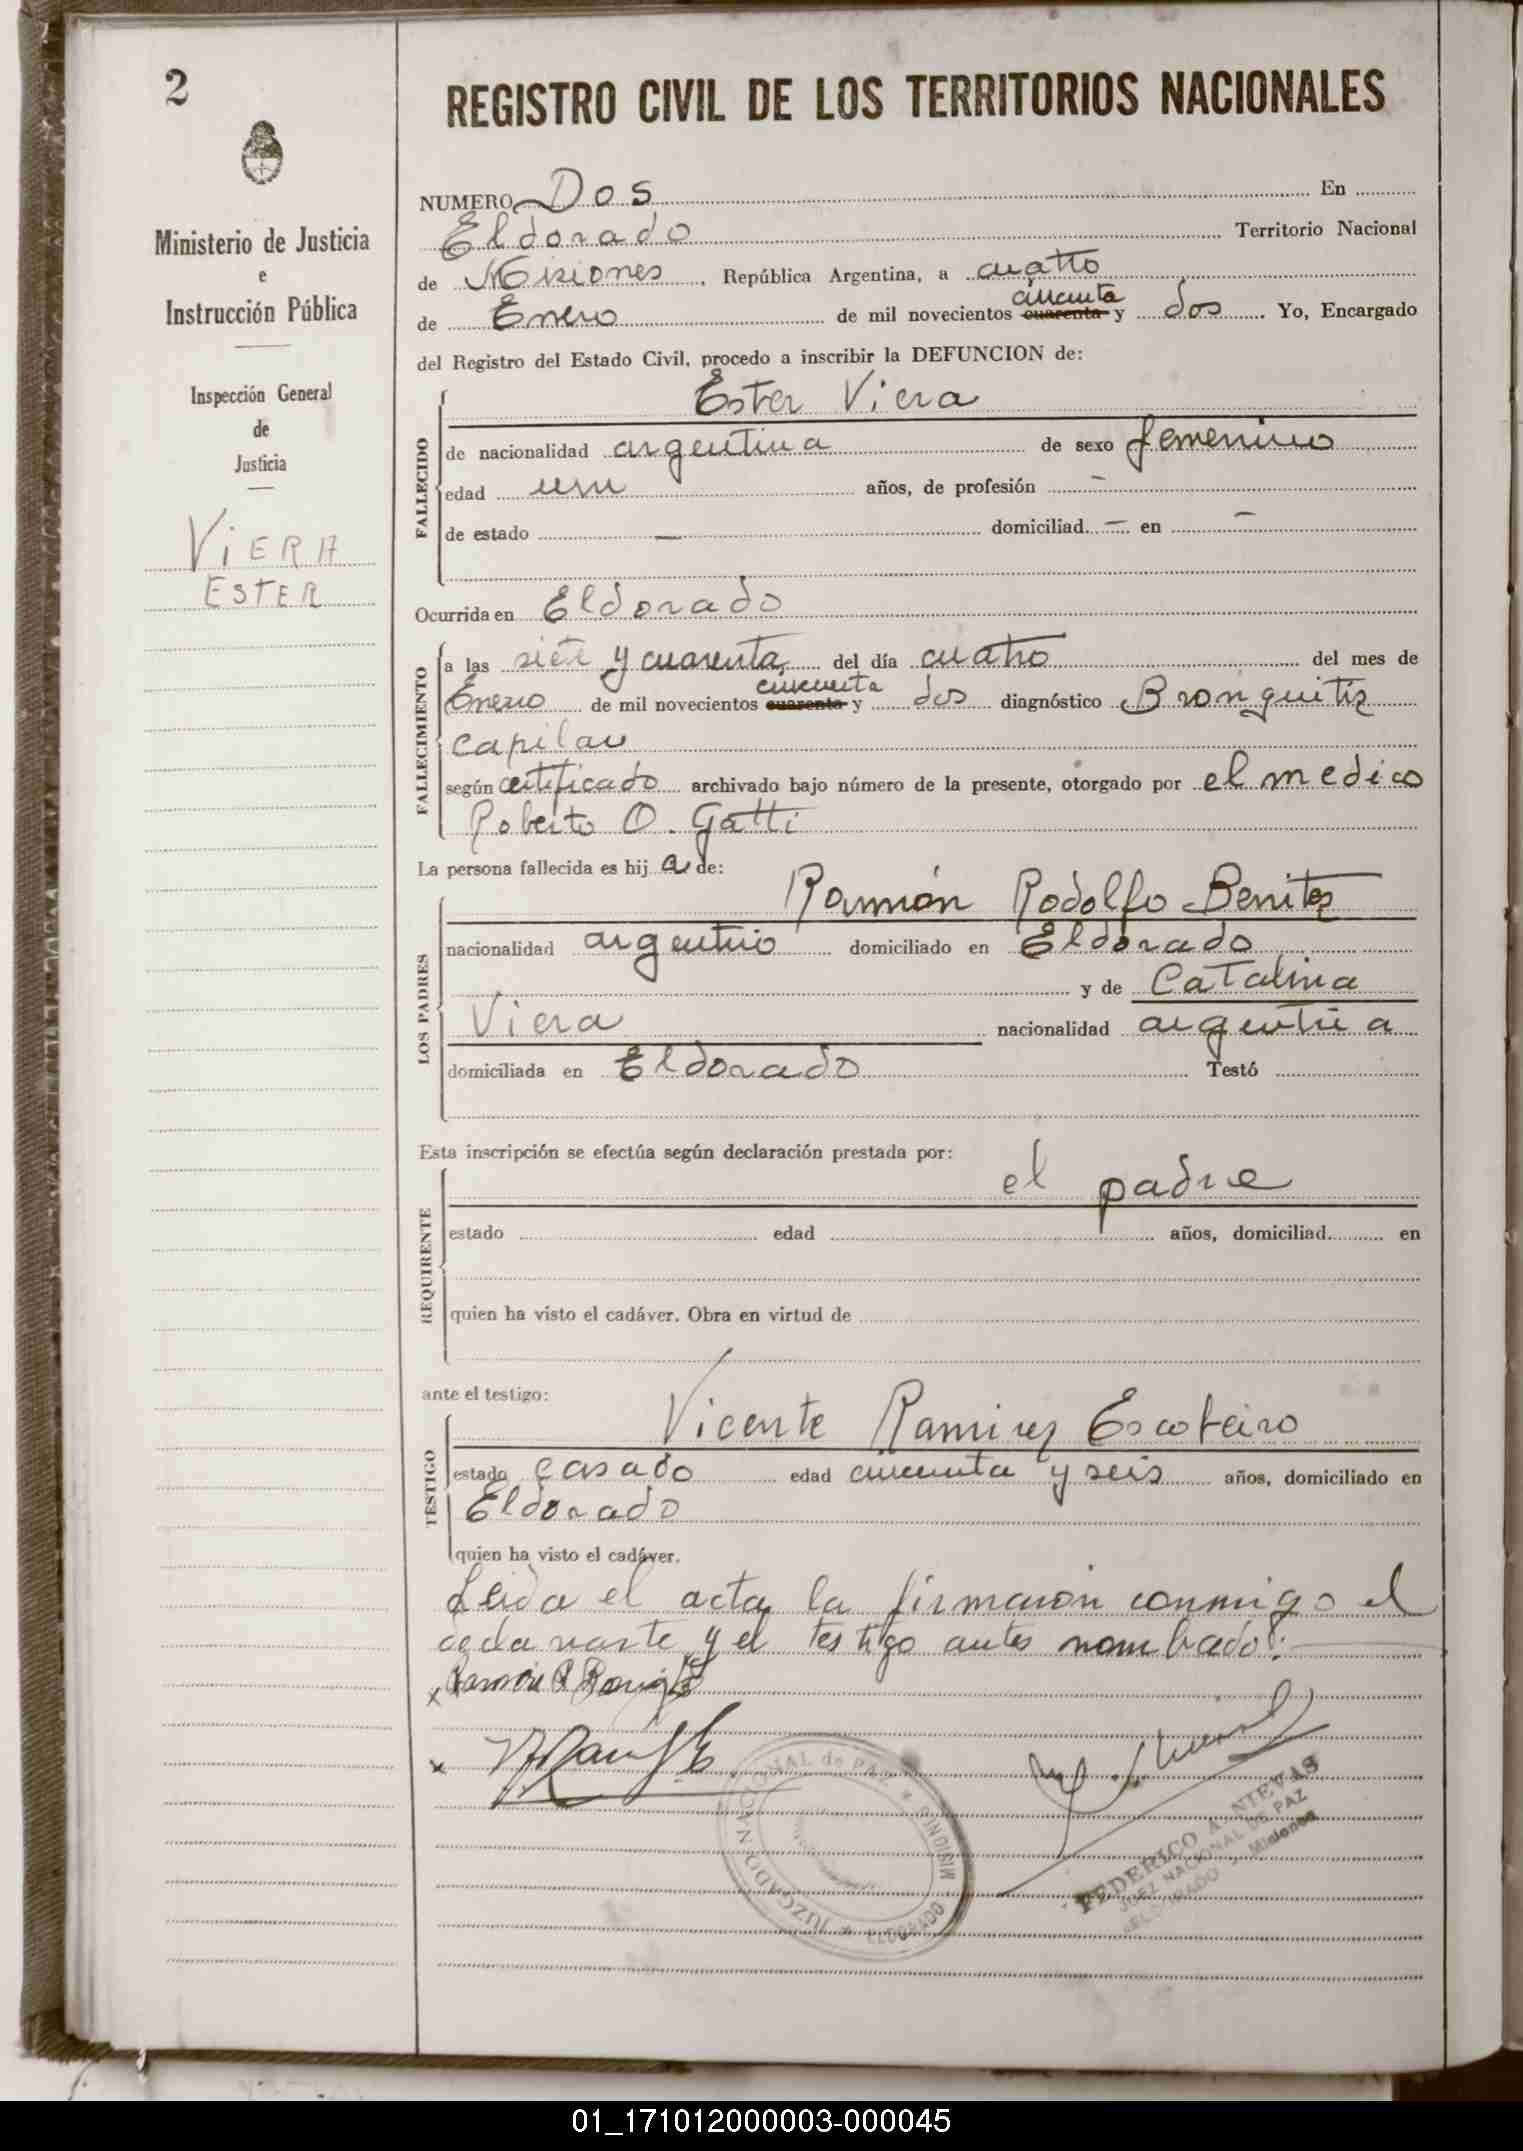 2
REGISTRO CIVIL DE LOS TERRITORIOS NACIONALES
Ministerio de Justicia
e
Instrucción Pública
Inspección General
de
Justicia
VIERA
ESTER
NUMERO Dos En
Eldorado Territorio Nacional
de Misiones, República Argentina, a cuatro
cincuenta
de Enero de mil novecientos cuarenta y dos Yo, Encargado
del Registro del Estado Civil, procedo a inscribir la DEFUNCION de:
FALLECIDO
Ester Viera
de nacionalidad argentina de sexo femenino
edad un años, de profesión -
de estado - domiciliad - en -
Ocurrida en Eldorado
FALLECIMIENTO
a las siete y cuarenta del día cuatro del mes de
cincuenta
Enero de mil novecientos cuarenta y dos diagnóstico Bronquitis
capilar
según certificado archivado bajo número de la presente, otorgado por el medico
Roberto O. Gatti
La persona fallecida es hij a de:
LOS PADRES
Ramón Rodolfo Benitez
nacionalidad argentino domiciliado en Eldorado
y de Catalina
Viera nacionalidad argentina
domiciliada en Eldorado Testó
Esta inscripción se efectúa según declaración prestada por:
REQUIRENTE
el padre
estado edad años, domiciliad en
quien ha visto el cadáver. Obra en virtud de
ante el testigo:
TESTIGO
Vicente Ramirez Escobeiro
estado casado edad cincuenta y seis años, domiciliado en
Eldorado
quien ha visto el cadáver.
Leida el acta la firmaron conmigo el
declarante y el testigo antes nombado:
JUZGADO NACIONAL de PAZ * MISIONES * ELDORADO *
FEDERICO A. NIEVAS
JUEZ NACIONAL DE PAZ
ELDORADO - Misiones
01_171012000003-000045